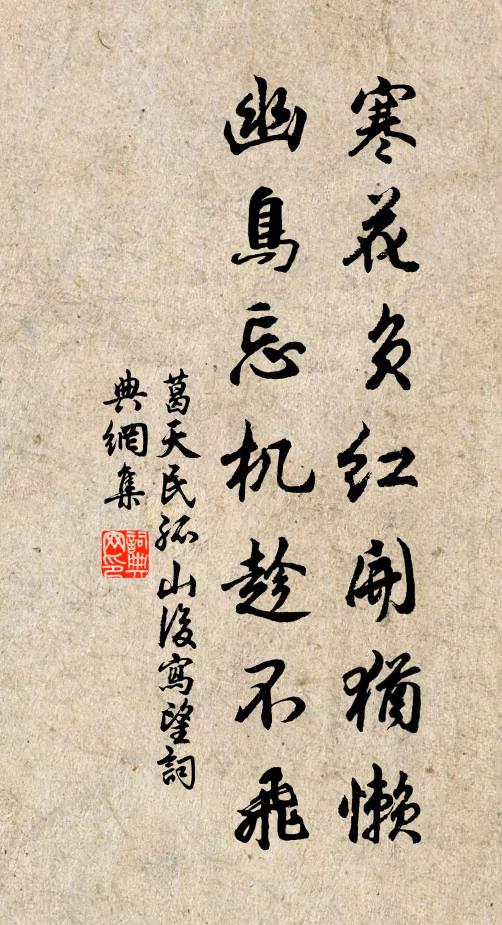 寒花負红開猶懒
幽鳥忘机趁不飛
葛天民孤山後寫望詞
典網集
詞典网印